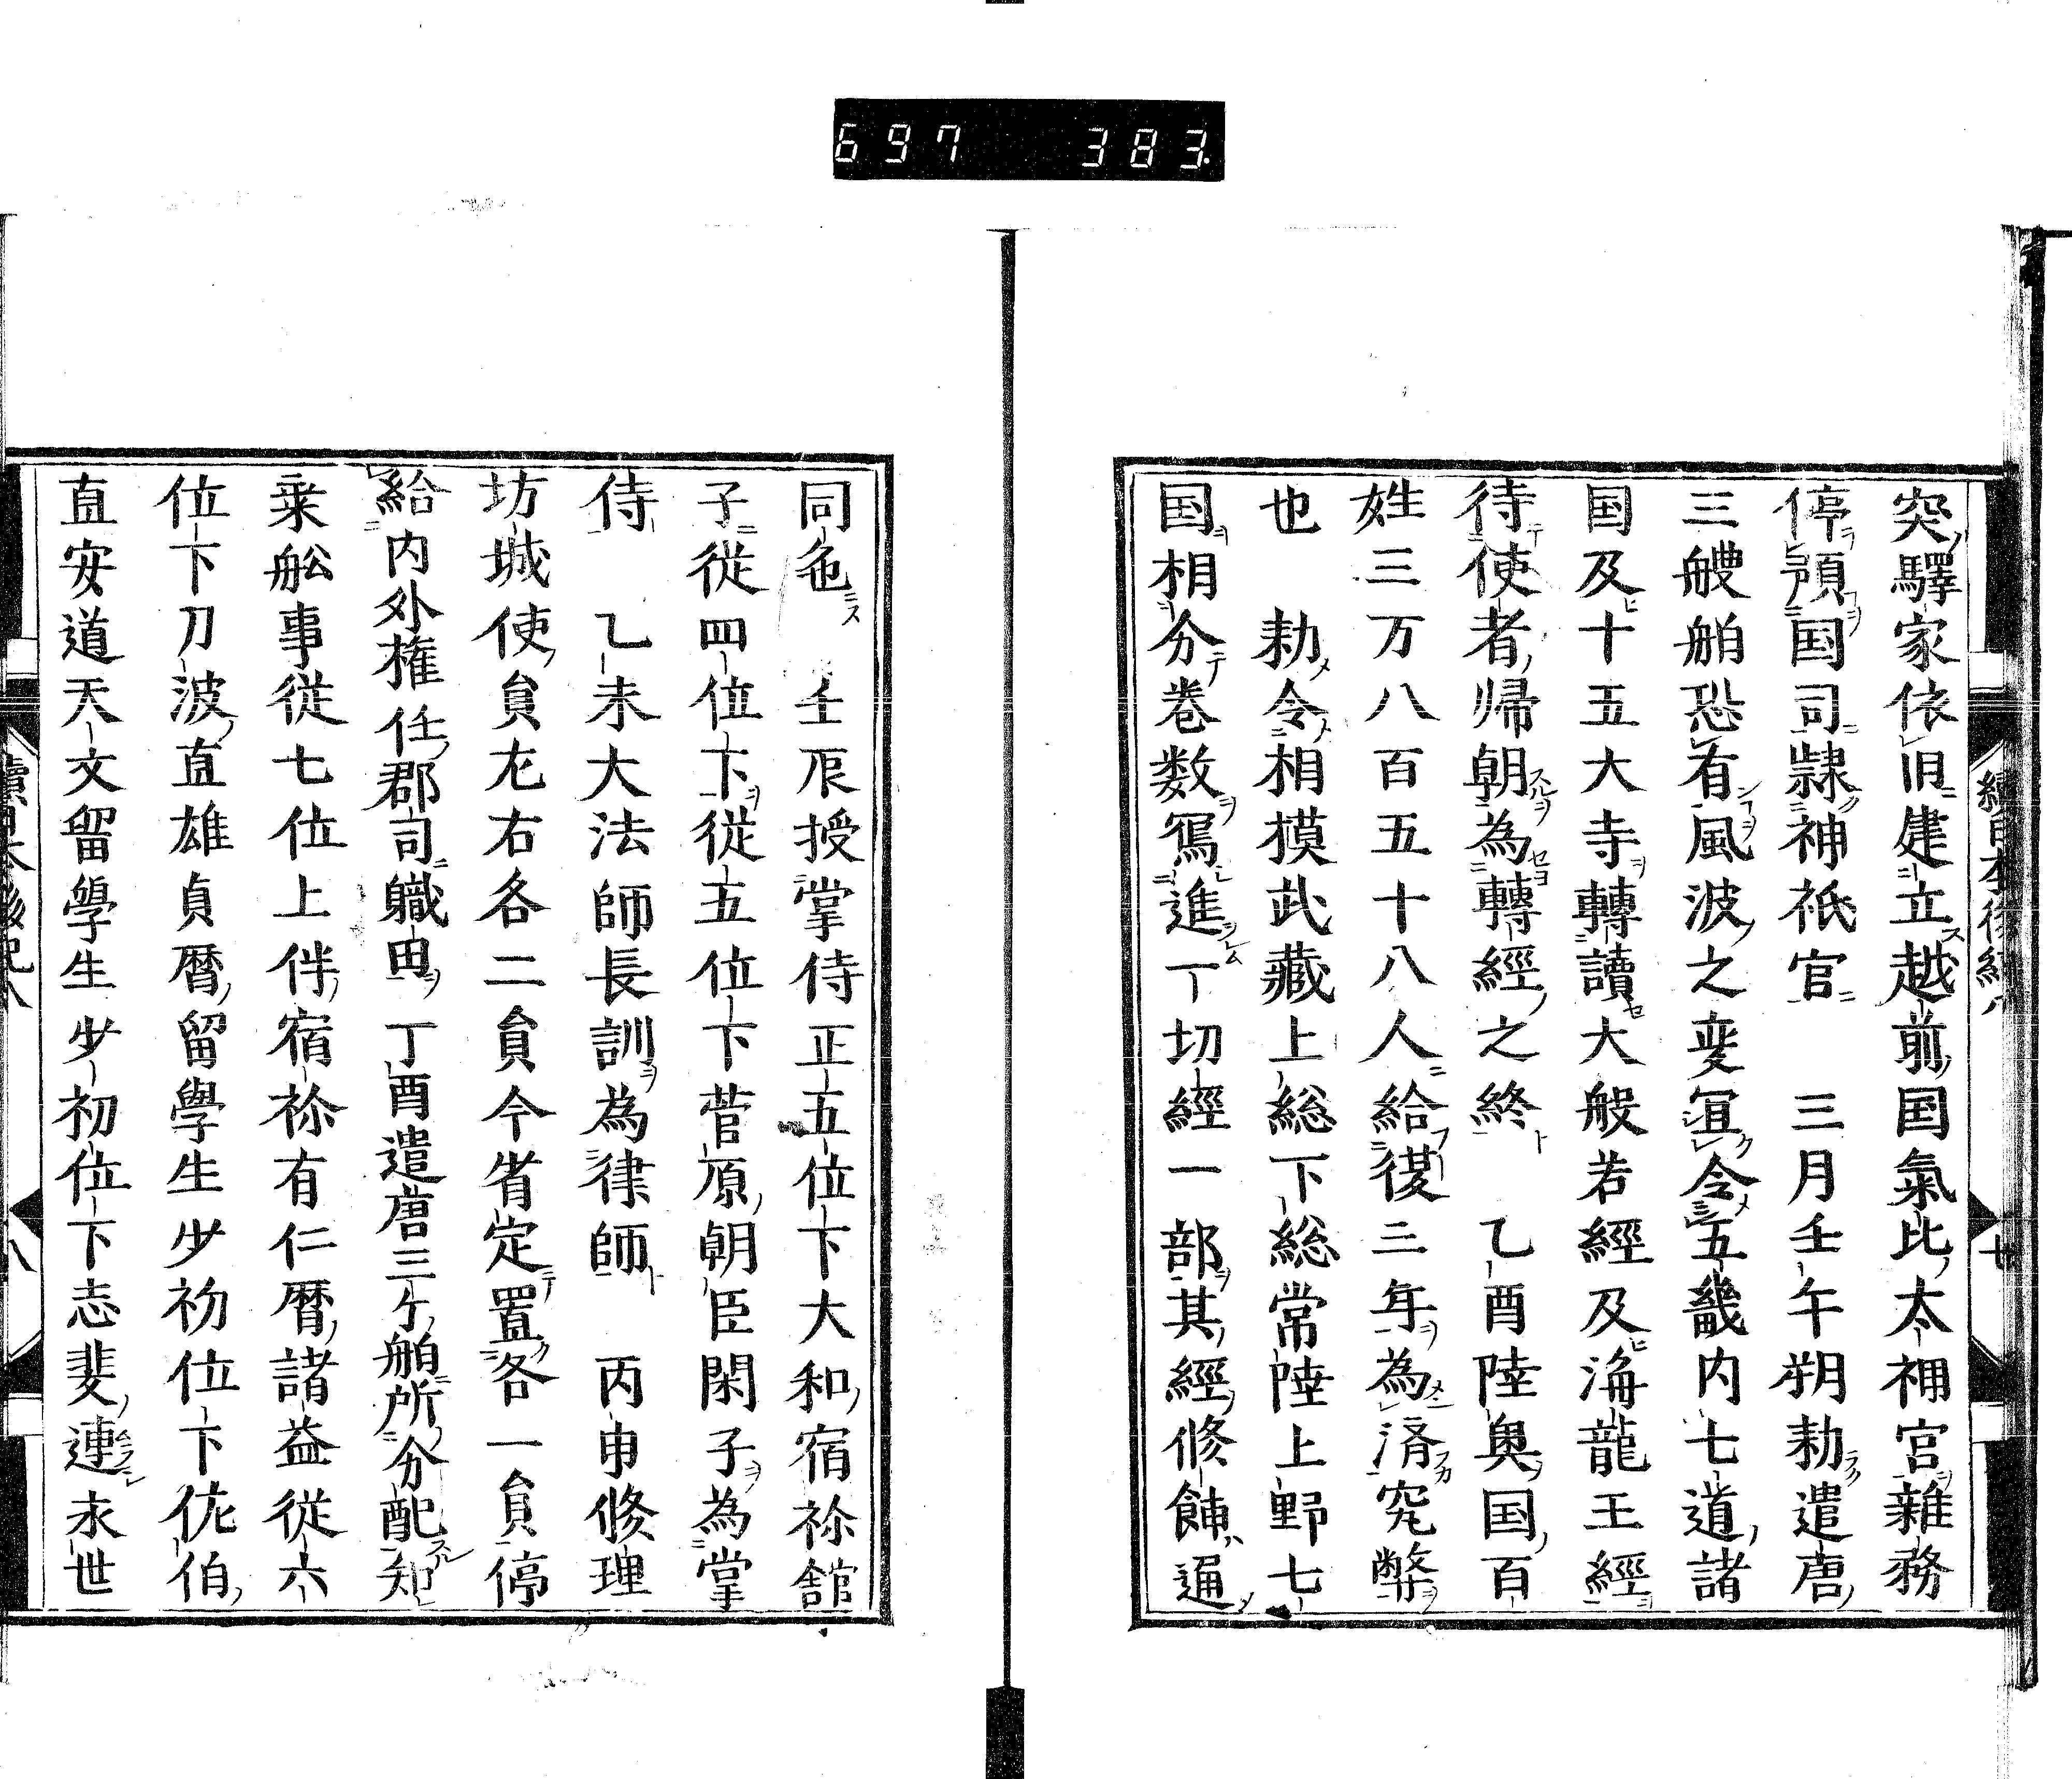 697 383.
續日本後紀八
七
突驛家依旧建立越前国氣比太神宮雜務
停預国司隷神祇官　三月壬午朔勅遣唐
三艘舶恐有風波之変冝令五畿内七道諸
国及十五大寺轉讀大般若經及海龍王經
待使者帰朝為轉經之終　乙酉陸奥国百
姓三万八百五十八人給復三年為済窮弊
也　勅令相摸武藏上総下総常陸上野七
国相分巻数寫進一切經一部其經修餝遍
同色　壬辰授掌侍正五位下大和宿祢舘
子從四位下從五位下菅原朝臣閑子為掌
侍　乙未大法師長訓為律師　丙申修理
坊城使員左右各二員今省定置各一員停
給内外権任郡司職田　丁酉遣唐三ケ舶所分配知
乗舩事従七位上伴宿祢有仁暦請益從六
位下刀波直雄貞暦留學生少初位下佐伯
直安道天文留學生少初位下志斐連永世
續日本後紀八
八